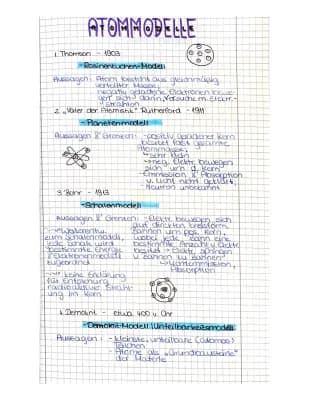 ATOMMODELLE
1. Thomson - 1903
Rosinenkuchen-Modell
Aussagen: Atom besteht aus gleichmäßig
verteilter Masse;
negativ geladene Elektronen bewe-
gen sich darin, Versuche m. Elektr.-
strahlen
2. "Vater der Atomistik" Rutherford - 1911
Planetenmodell
Aussagen & Grenzen: - positiv geladener Kern
besitzt fast gesamte
Atommasse;
sehr klein
neg. Elektr. bewegen
sich um d. Kern
- Emission & Absorption
v. Licht nicht geklärt
- Neutron unbekannt
3. Bohr - 1913
Schalenmodell
Aussagen & Grenzen: - Elektr. bewegen sich
auf direkten kreisform.
- Weiterentw. Bahnen um pos. Kern,
zum Schalenmodell, wobei jede Bahn eine
jede Schale wird bestimmte Anzahl v. Elektr.
bestimmte Energie besitzt - Elektr. springen
zugeordnet v. Bahnen zu Bahnen
Absorption
- keine Erklärung
für Entstehung
radioaktiver Strahl-
ung im Kern
4. Demokrit - etwa 400 v. Chr
Demokrit-Modell (Unteilbarkeitsmodell)
Aussagen: - kleinste, unteilbare (átomos)
Teilchen
- Atome als "Grundbausteine"
der Materie